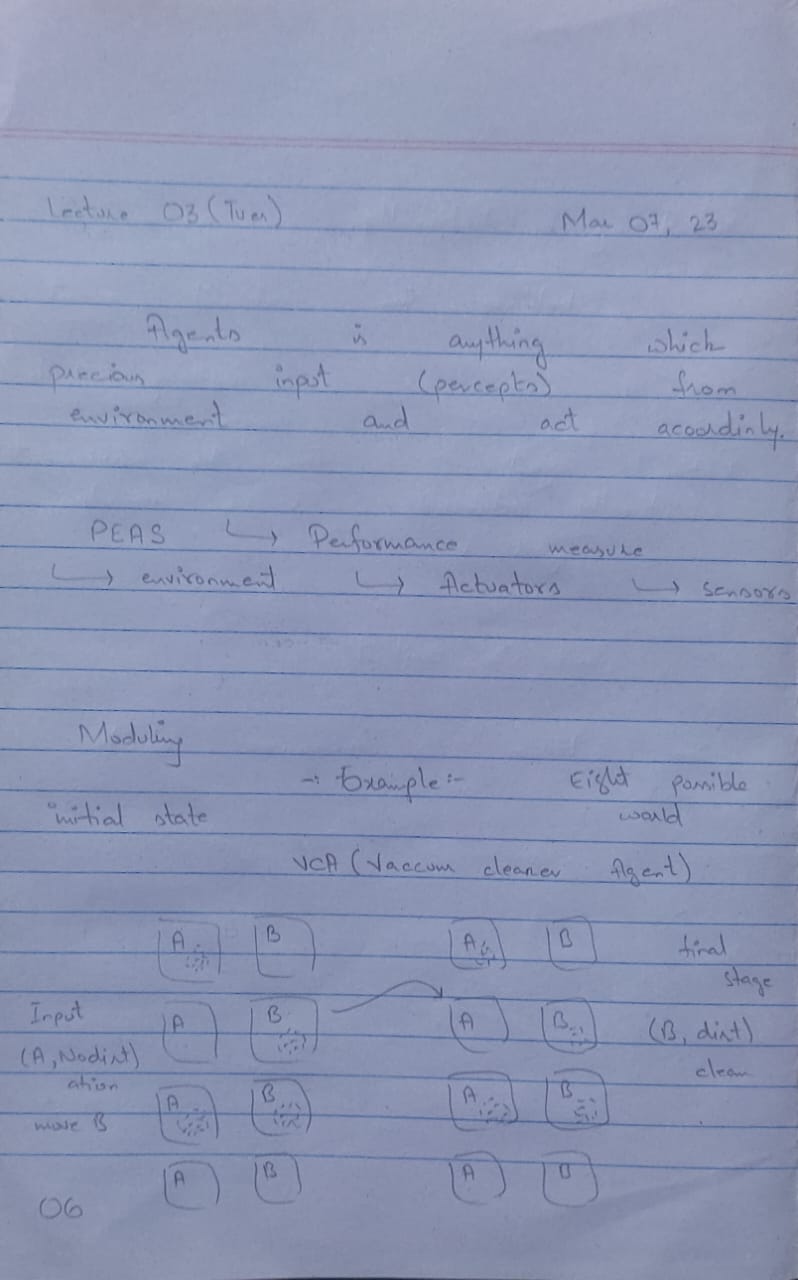 Lecture 03 (Tues) Mar 07, 23
Agents is anything which
precious input (percepts) from
environment and act acoordinly.
PEAS ↳ Performance measure
↳ environment ↳ Actuators ↳ sensors
Moduling
-: Example :- Eight possible
initial state world
VCA (Vaccum cleaner Agent)
A B A B final
stage
Input A B A B (B, dirt)
(A, Nodirt) clean
ation A B A B
move B
A B A B
06